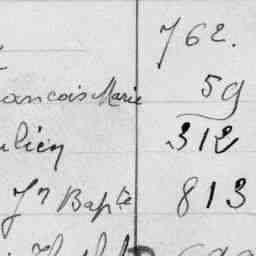 762.
ancois Marie 59
ulien 312
Jn Bapte 813